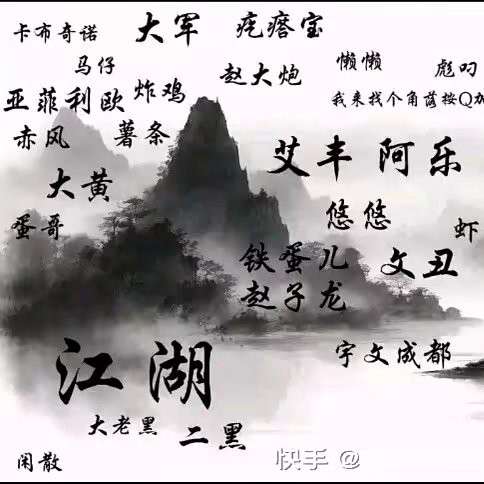 卡布奇诺
大军
疙瘩宝
马仔
赵大炮
懒懒
彪叼
亚菲利欧
炸鸡
我来找个角落按Q加
赤风
薯条
艾丰
阿乐
大黄
悠悠
蛋哥
虾
铁蛋儿
文丑
赵子龙
江湖
宇文成都
大老黑
二黑
闲散
快手 @